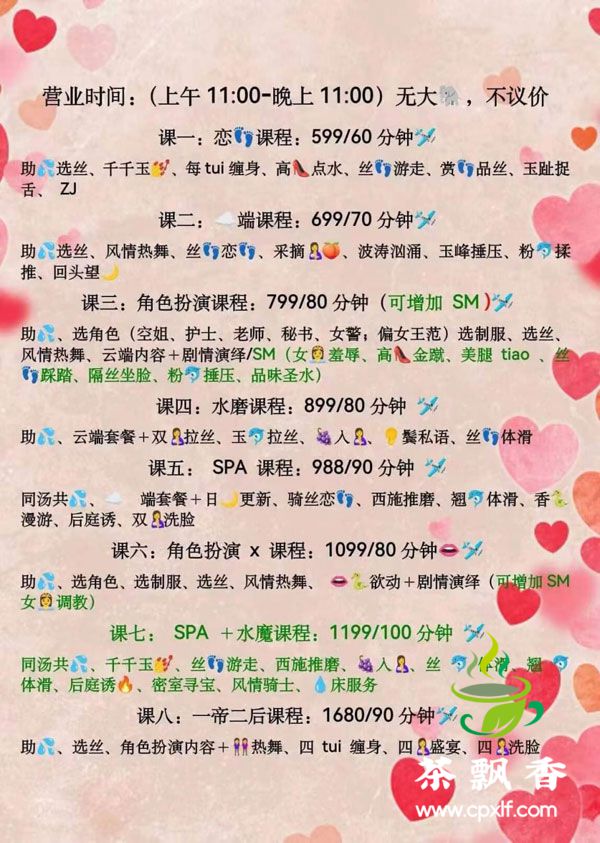 营业时间：（上午 11:00-晚上 11:00）无大🐘，不议价
课一：恋👣课程：599/60 分钟🛩️
助💦选丝、千千玉💅、每 tui 缠身、高👠点水、丝👣游走、赏👣品丝、玉趾捉
舌、 ZJ
课二：☁️端课程：699/70 分钟🛩️
助💦选丝、风情热舞、丝👣恋👣、采摘🤱🍑、波涛汹涌、玉峰捶压、粉🐬揉
推、回头望🌙
课三：角色扮演课程：799/80 分钟（可增加 SM )🛩️
助💦、选角色（空姐、护士、老师、秘书、女警；偏女王范）选制服、选丝、
风情热舞、云端内容＋剧情演绎/SM（女👸羞辱、高👠金蹴、美腿 tiao 、丝
👣踩踏、隔丝坐脸、粉🐬捶压、品味圣水）
课四：水磨课程：899/80 分钟 🛩️
助💦、云端套餐＋双🤱拉丝、玉🐬拉丝、🍇入🤱、👂鬓私语、丝👣体滑
课五： SPA 课程：988/90 分钟 🛩️
同汤共💦、☁️ 端套餐＋日🌙更新、骑丝恋👣、西施推磨、翘🐬体滑、香🐍
漫游、后庭诱、双🤱洗脸
课六：角色扮演 x 课程：1099/80 分钟👄🛩️
助💦、选角色、选制服、选丝、风情热舞、 👄🐍欲动＋剧情演绎（可增加 SM
女👸调教）
课七： SPA ＋水魔课程：1199/100 分钟 🛩️
同汤共💦、千千玉💅、丝👣游走、西施推磨、🍇入🤱、丝 🐬体滑、翘 🐬
体滑、后庭诱🔥、密室寻宝、风情骑士、💧床服务
课八：一帝二后课程：1680/90 分钟🛩️
助💦、选丝、角色扮演内容＋👭热舞、四 tui 缠身、四🤱盛宴、四🤱洗脸
茶飘香
www.cpxlf.com